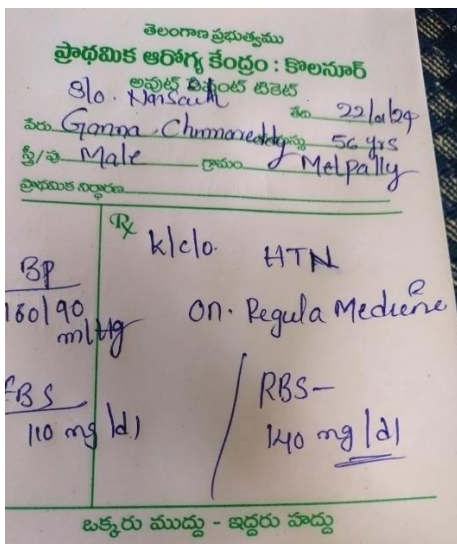 తెలంగాణ ప్రభుత్వము
ప్రాథమిక ఆరోగ్య కేంద్రం : కొలనూర్
అవుట్ పేషెంట్ టికెట్
S/o.
తేది 22/01/24
పేరు Ganna Chinnareddy వయస్సు 56 yrs
స్త్రీ/పు Male గ్రామం Metpally
ప్రాథమిక నిర్ధారణ
Rx K/c/o. HTN
BP
160/90 On. Regula Medicine
m/Hg
FBS RBS-
110 mg/d) 140 mg/dl
ఒక్కరు ముద్దు - ఇద్దరు హద్దు